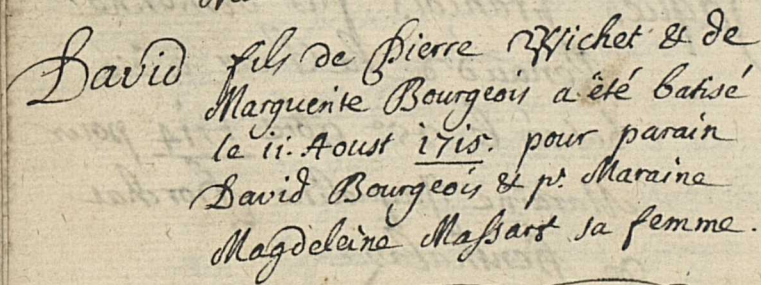 David fils de Pierre Wichet & de
Marguerite Bourgeois a été batisé
le 11. Aoust 1715. pour parain
David Bourgeois & pr. Maraine
Magdeleine Massart sa femme.